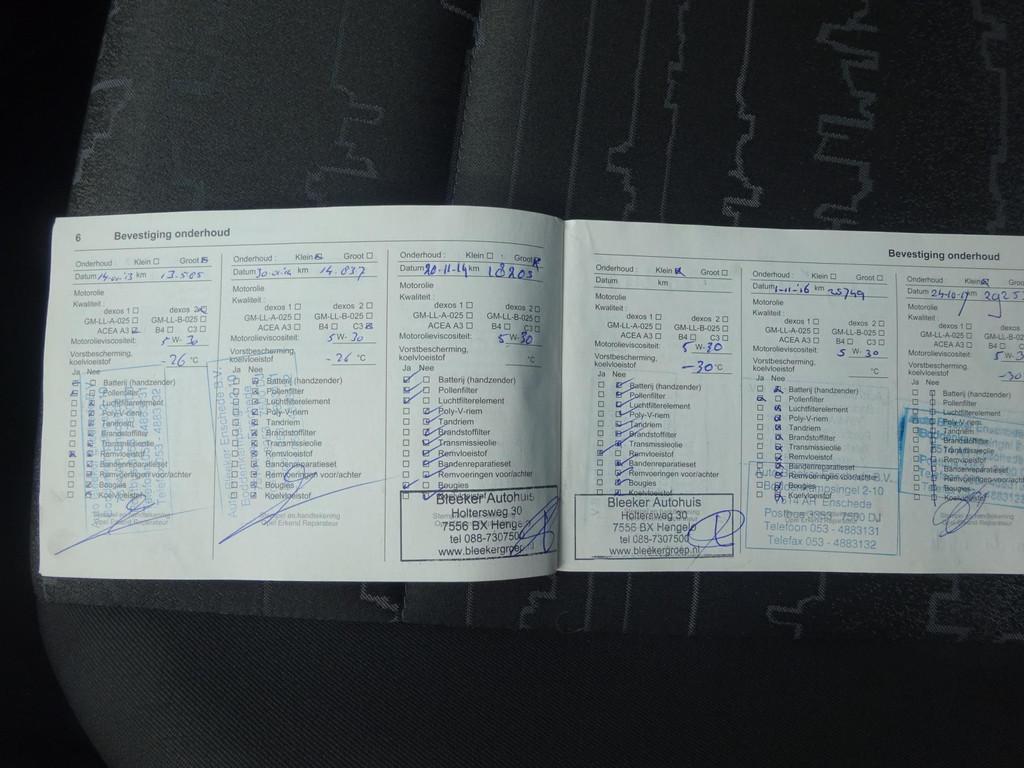 6 Bevestiging onderhoud
Onderhoud : Klein Groot
Datum km 13.505
Motorolie
Kwaliteit :
dexos 1 dexos 2
GM-LL-A-025 GM-LL-B-025
ACEA A3 B4 C3
Motorolieviscositeit: 5 W- 30
Vorstbescherming,
koelvloeistof -26 °C
Ja Nee
Batterij (handzender)
Pollenfilter
Luchtfilterelement
Poly-V-riem
Tandriem
Brandstoffilter
Transmissieolie
Remvloeistof
Bandenreparatieset
Remvoeringen voor/achter
Bougies
Koelvloeistof
Onderhoud : Klein Groot
Datum km 14.037
Motorolie
Kwaliteit :
dexos 1 dexos 2
GM-LL-A-025 GM-LL-B-025
ACEA A3 B4 C3
Motorolieviscositeit: 5 W- 30
Vorstbescherming,
koelvloeistof -26 °C
Ja Nee
Batterij (handzender)
Pollenfilter
Luchtfilterelement
Poly-V-riem
Tandriem
Brandstoffilter
Transmissieolie
Remvloeistof
Bandenreparatieset
Remvoeringen voor/achter
Bougies
Koelvloeistof
Opel Erkend Reparateur
Onderhoud : Klein Groot
Datum 20-11-14 km 18205
Motorolie
Kwaliteit :
dexos 1 dexos 2
GM-LL-A-025 GM-LL-B-025
ACEA A3 B4 C3
Motorolieviscositeit: 5 W- 30
Vorstbescherming,
koelvloeistof °C
Ja Nee
Batterij (handzender)
Pollenfilter
Luchtfilterelement
Poly-V-riem
Tandriem
Brandstoffilter
Transmissieolie
Remvloeistof
Bandenreparatieset
Remvoeringen voor/achter
Bougies
Bleeker Autohuis
Holtersweg 30
7556 BX Hengelo
tel 088-7307500
www.bleekergroep.nl
Bevestiging onderhoud
Onderhoud : Klein Groot
Datum km
Motorolie
Kwaliteit :
dexos 1 dexos 2
GM-LL-A-025 GM-LL-B-025
ACEA A3 B4 C3
Motorolieviscositeit: 5 W- 30
Vorstbescherming,
koelvloeistof -30 °C
Ja Nee
Batterij (handzender)
Pollenfilter
Luchtfilterelement
Poly-V-riem
Tandriem
Brandstoffilter
Transmissieolie
Remvloeistof
Bandenreparatieset
Remvoeringen voor/achter
Bougies
Koelvloeistof
Bleeker Autohuis
Holtersweg 30
7556 BX Hengelo
tel 088-7307500
www.bleekergroep.nl
Onderhoud : Klein Groot
Datum 1-11-'16 km 25749
Motorolie
Kwaliteit :
dexos 1 dexos 2
GM-LL-A-025 GM-LL-B-025
ACEA A3 B4 C3
Motorolieviscositeit: 5 W- 30
Vorstbescherming,
koelvloeistof °C
Ja Nee
Batterij (handzender)
Pollenfilter
Luchtfilterelement
Poly-V-riem
Tandriem
Brandstoffilter
Transmissieolie
Remvloeistof
Bandenreparatieset
Remvoeringen voor/achter
Bougies
Koelvloeistof
B.V.
2-10
Enschede
Postbus 7500 DJ
Telefoon 053 - 4883131
Telefax 053 - 4883132
Onderhoud : Klein
Datum 24-10-17 km
Motorolie
Kwaliteit :
dexos 1
GM-LL-A-025 GM-LL-B-025
ACEA A3 B4 C3
Motorolieviscositeit: 5 W-
Vorstbescherming,
koelvloeistof -30
Ja Nee
Batterij (handzender)
Pollenfilter
Luchtfilterelement
Poly-V-riem
Tandriem
Brandstoffilter
Remvloeistof
Bandenreparatieset
Remvoeringen voor/achter
Bougies
Stempel en handtekening
Opel Erkend Reparateur